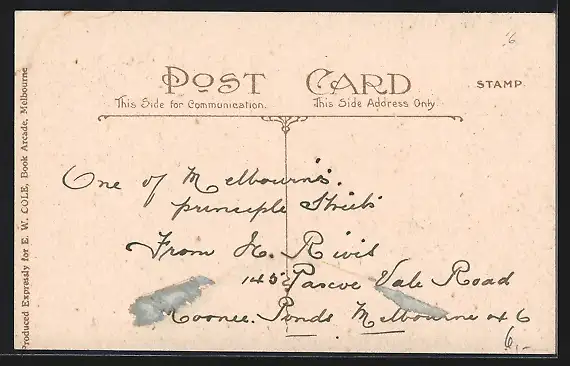 6
POST CARD
STAMP
This Side for Communication.
This Side Address Only.
Produced Expressly for E. W. COLE, Book Arcade, Melbourne
One of Melbourn's.
principle Streets
From H. Rivis
145 Pascoe Vale Road
Moonee. Ponds Melbourne
6,-